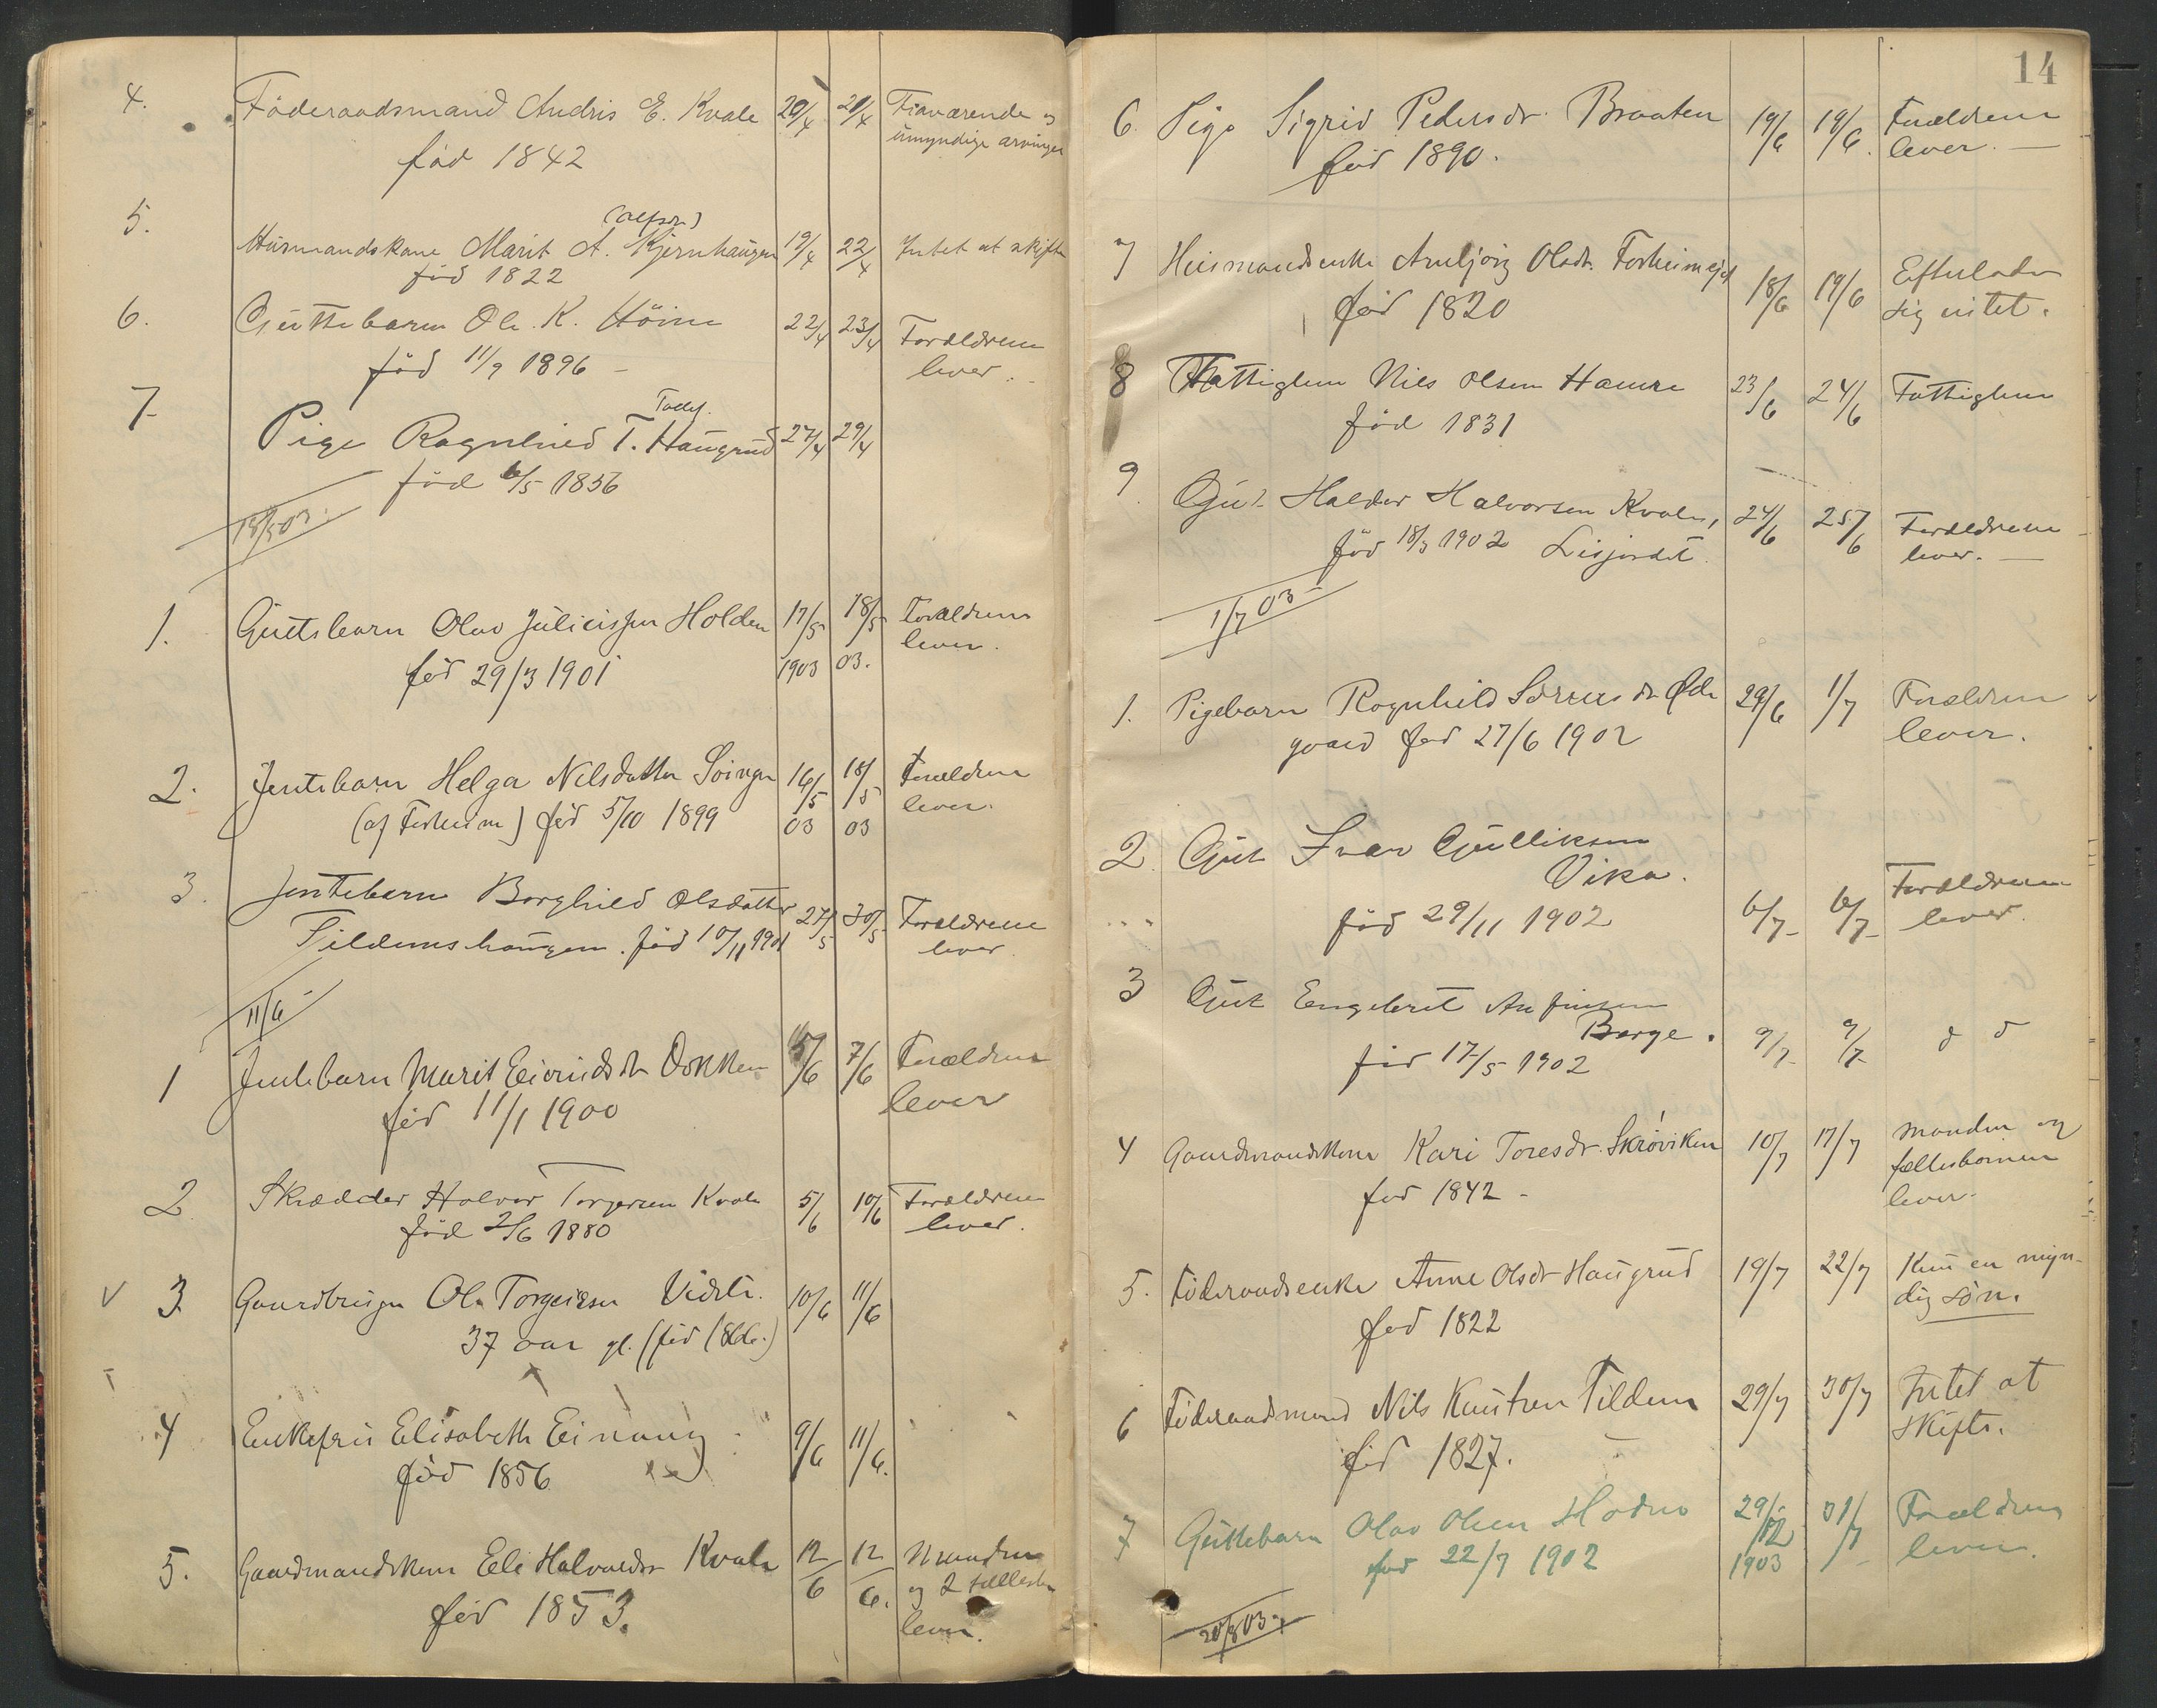 4. Föderaadsmand Andris E. Kvale 20/4 21/4 Fraværende og
född 1842 umyndige arvinger
(Alfsdr)
5. Husmandskone Marit A. Kjernhaugen 19/4 22/4 Intet at skifte
föd 1822
6. Guttebarn Ole K. Höine 22/4 23/4 Forældrene
föd 11/9 1896 – lever.
7. Pige Ragnhild T. Haugrud 27/4 29/4
föd 6/5 1856
18/5 03.
1. Guttebarn Olav Juliussen Holden 17/5 18/5 Forældrene
1903 03. lever.
föd 29/3 1901
2. Jentebarn Helga Nilsdatter 16/5 18/5 Forældrene
(af Forheim) föd 5/10 1899 03 03 lever.
3. Jentebarn Borghild Olsdatter 27/5 30/5 Forældrene
Tildemshaugen. föd 10/11 1901 lever.
11/6
1 Jentebarn Marit Eivindsdr Dokken 5/6 7/6 Forældrene
föd 11/1 1900 lever
2 Skrædder Halvor Torgersen Kvale 5/6 10/6 Forældrene
föd 2/6 1880 lever.
V 3. Gaardbruger Ole Torgersen 10/6 11/6
37 aar gl. (föd
4 Enkefru Elisabeth Einang 9/6 11/6.
föd 1856
5. Gaardmandskone Eli Halvardsdr Kvale 12/6 12/6. Manden
og 2 fællesbn
föd 1853. lever.
14
6. Pige Sigrid Pedersdr. Braaten 19/6 19/6. Forældrene
föd 1890. lever. —
7 Husmandsenke Anbjörg Olsdr. Forheimejet 18/6 19/6 Efterlader
föd 1820 sig intet.
8 Fattiglem Nils Olsen Hamre 23/6 24/6 Fattiglem
föd 1831
9. Gut Haldor Halvorsen Kvale, 24/6 25/6 Forældrene
föd 18/3 1902 Lisjordet lever. —
1/7 03 –
1. Pigebarn Ragnhild dr. Öde 29/6 1/7 Forældrene
gaard föd 27/6 1902 lever.
2. Gut Ivar Gulliksen
Vika.
föd 29/11 1902 6/7– 6/7– Forældrene
lever.
3 Gut Engebret Anfinsen
Berge. 9/7– 9/7– d d
föd 17/5 1902
4 Gaardmandskone Kari Toresdr. Skröviken 10/7 17/7 Manden og
föd 1842 – fællesbörnene
lever.
5. Föderaadsenke Anne Olsdr Haugrud 19/7 22/7 Kun en myn-
föd 1822 dig sön.
6 Föderaadmand Nils Knutsen Tildem 29/7 30/7 Intet at
föd 1827. skifte.
7 Guttebarn Olav Olsen 31/7 Forældrene
föd 22/7 1902 1903 lever.
20/8 03.